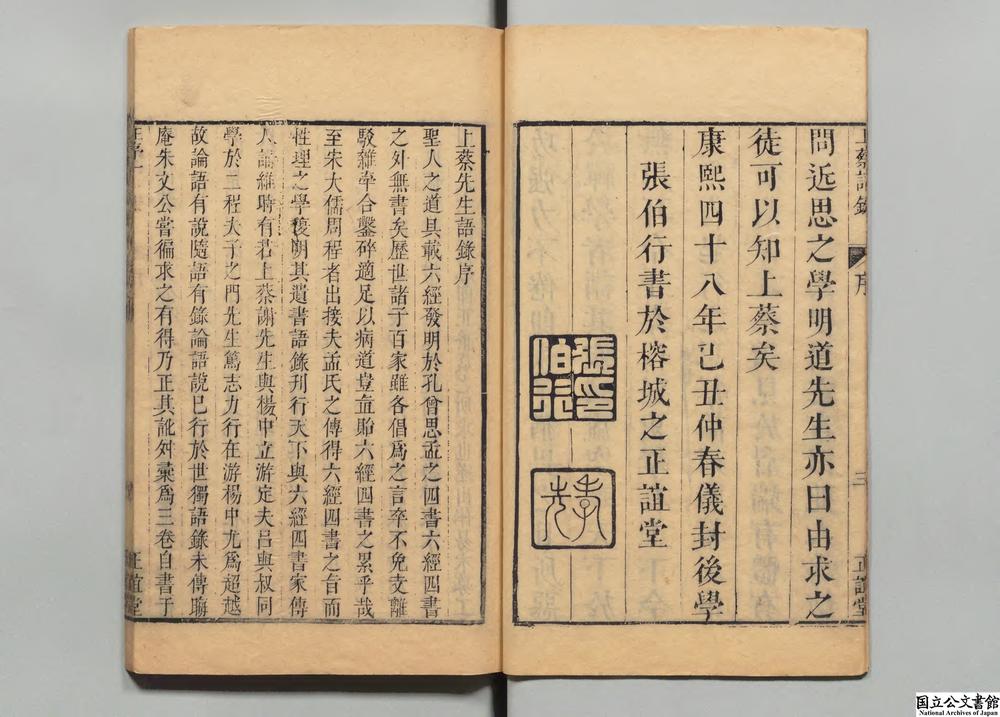 上蔡語錄
序
三
正誼堂
問近思之學明道先生亦曰由求之
徒可以知上蔡矣
康熙四十八年己丑仲春儀封後學
張伯行書於榕城之正誼堂
張伯行印
孝先
上蔡先生語錄序
聖人之道具載六經發明於孔曾思孟之四書六經四書
之外無書矣歷世諸子百家雖各倡爲之言卒不免支離
駁雜牽合鑿碎適足以病道豈啻貽六經四書之累乎哉
至宋大儒周程者出接夫孟氏之傳得六經四書之旨而
性理之學復明其遺書語錄刊行天下與六經四書家傳
人誦維時有若上蔡謝先生與楊中立游定夫呂與叔同
學於二程夫子之門先生篤志力行在游楊中尤爲超越
故論語有說隨語有錄論語說已行於世獨語錄未傳晦
庵朱文公嘗徧求之有得乃正其訛舛彙爲三卷自書于
正誼堂
国立公文書館
National Archives of Japan